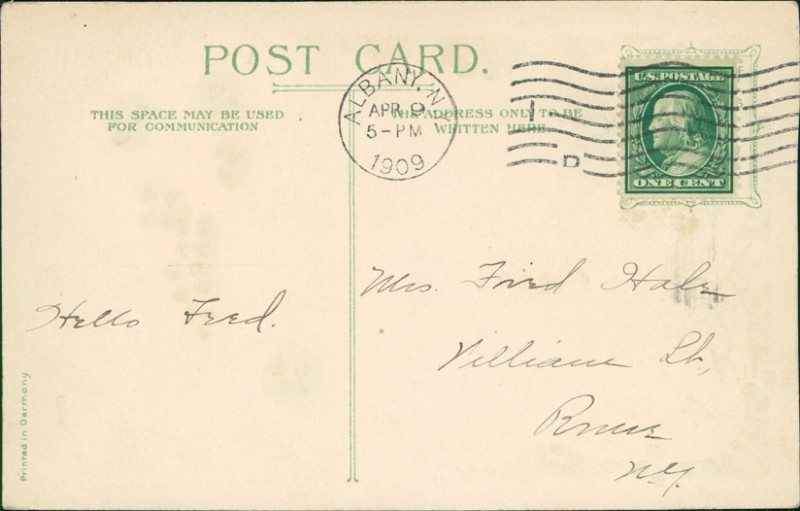 POST CARD.
THIS SPACE MAY BE USED
FOR COMMUNICATION
THIS ADDRESS ONLY TO BE
WRITTEN HERE
ALBANY, N
APR 9
5-PM
1909
D
U.S. POSTAGE
ONE CENT
Hello Fred.
Mrs. Fred Hale
William St,
Rome
N.Y.
Printed in Germany.